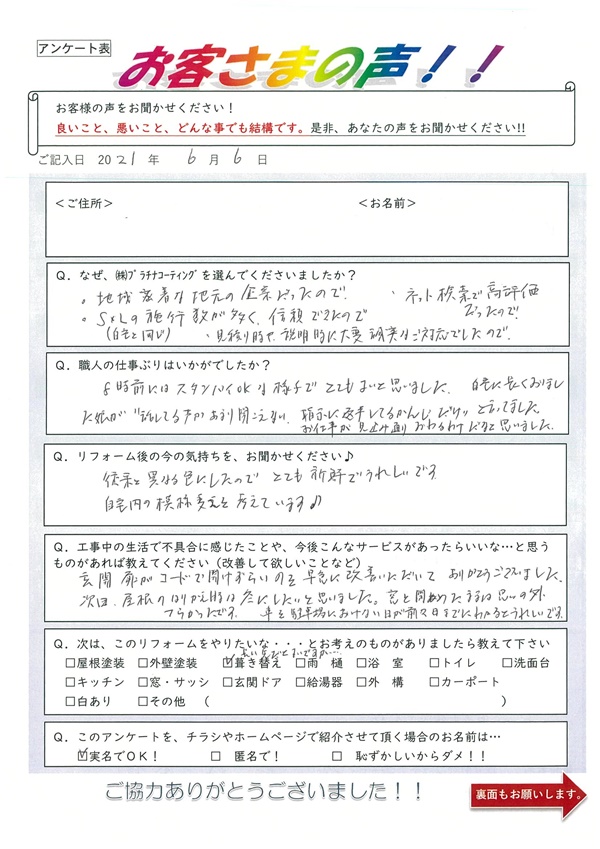 アンケート表
お客さまの声！！
お客様の声をお聞かせください！
良いこと、悪いこと、どんな事でも結構です。是非、あなたの声をお聞かせください!!
ご記入日 2021 年 6 月 6 日
＜ご住所＞ ＜お名前＞
Q．なぜ、㈱プラチナコーティングを選んでくださいましたか？
。地域密着な地元の企業だったので. ・ネット検索で高評価
だったので!
。SXLの施行数が多く、信頼できたので
(自宅と同じ) ・見積り時や説明時に大変誠実なご対応でしたので.
Q．職人の仕事ぶりはいかがでしたか？
8時前にはスタンバイOKな様子で とてもよいと思いました. 自宅に長くおりまし
た娘が
お仕事が見込み通りおわるわけだなと思いました.
Q．リフォーム後の今の気持ちを、お聞かせください♪
従来と異なる色にしたので とても新鮮でうれしいです.
自宅内の模様変えを考えています♪
Q．工事中の生活で不具合に感じたことや、今後こんなサービスがあったらいいな…と思う
ものがあれば教えてください（改善して欲しいことなど）
玄関扉がコードで開けずらいのを早急に改善いただいて ありがとうございました.
次回、屋根のはりかえ時は冬にしたいと思いました. 窓を閉めたままは思いの外
つらかったです. 車を駐車場におけない日が前々日までにわかるとうれしいです.
Q．次は、このリフォームをやりたいな・・・とお考えのものがありましたら教えて下さい
□屋根塗装 □外壁塗装 ☑葺き替え □雨 樋 □浴 室 □トイレ □洗面台
□キッチン □窓・サッシ □玄関ドア □給湯器 □外 構 □カーポート
□白あり □その他 （ ）
Q．このアンケートを、チラシやホームページで紹介させて頂く場合のお名前は…
☑実名でOK！ □ 匿名で！ □ 恥ずかしいからダメ！！
ご協力ありがとうございました！！
裏面もお願いします。